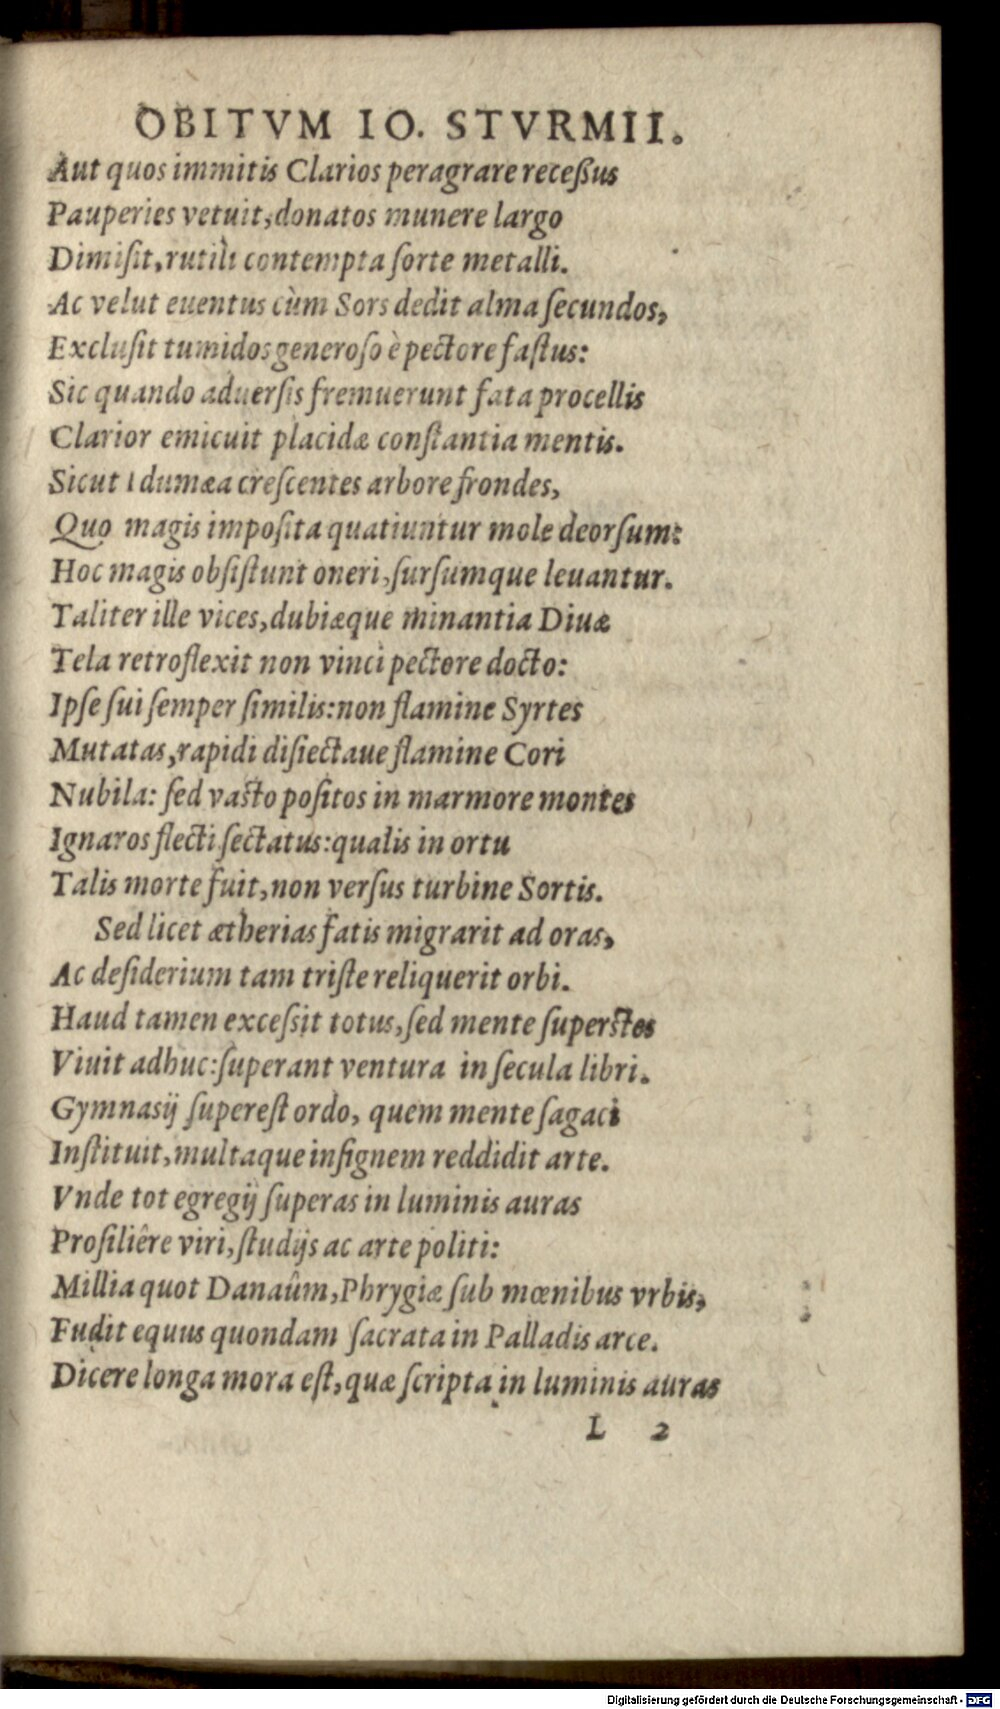 OBITVM IO. STVRMII.
Aut quos immitis Clarios peragrare receßus
Pauperies vetuit, donatos munere largo
Dimiſit, rutili contempta ſorte metalli.
Ac velut euentus cùm Sors dedit alma ſecundos,
Excluſit tumidos generoſo è pectore faſtus:
Sic quando aduerſis fremuerunt fata procellis
Clarior emicuit placidæ conſtantia mentis.
Sicut Idumæa creſcentes arbore frondes,
Quo magis impoſita quatiuntur mole deorſum:
Hoc magis obſiſtunt oneri, ſurſumque leuantur.
Taliter ille vices, dubiæque minantia Diuæ
Tela retroflexit non vinci pectore docto:
Ipſe ſui ſemper ſimilis: non flamine Syrtes
Mutatas, rapidi diſiectaue flamine Cori
Nubila: ſed vaſto poſitos in marmore montes
Ignaros flecti ſectatus: qualis in ortu
Talis morte fuit, non verſus turbine Sortis.
Sed licet ætherias fatis migrarit ad oras,
Ac deſiderium tam triſte reliquerit orbi.
Haud tamen exceſsit totus, ſed mente ſuperſtes
Viuit adhuc: ſuperant ventura in ſecula libri.
Gymnasij ſupereſt ordo, quem mente ſagaci
Inſtituit, multaque inſignem reddidit arte.
Vnde tot egregij ſuperas in luminis auras
Proſiliêre viri, ſtudijs ac arte politi:
Millia quot Danaûm, Phrygiæ ſub mœnibus vrbis,
Fudit equus quondam ſacrata in Palladis arce.
Dicere longa mora eſt, quæ ſcripta in luminis auras
L 2
Digitalisierung gefördert durch die Deutsche Forschungsgemeinschaft - DFG